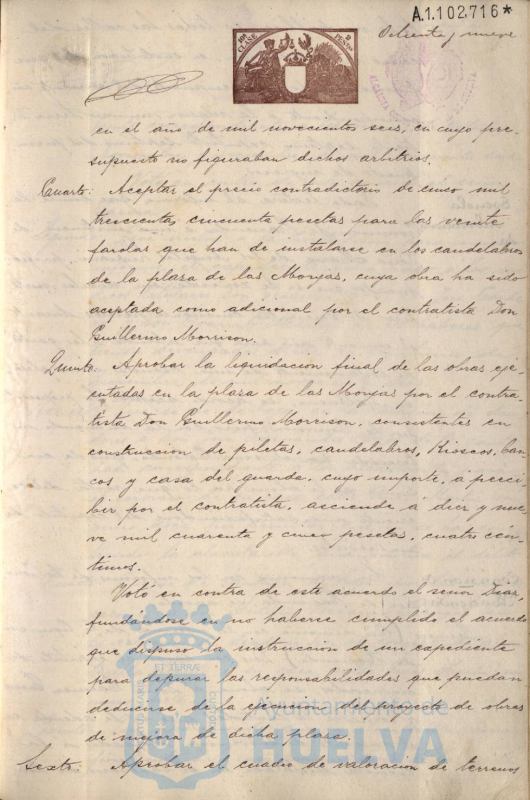 A.1.102.716*
10ª CLASE
2 PESETAS
Ochenta y nueve
en el año de mil novecientos seis, en cuyo pre-
supuesto no figuraban dichos arbitrios.
Cuarto: Aceptar el precio contradictorio de cinco mil
trescientas cincuenta pesetas para las veinte
farolas que han de instalarse en los candelabros
de la plaza de las Monjas, cuya obra ha sido
aceptada como adicional por el contratista Don
Guillermo Morrison.
Quinto: Aprobar la liquidacion final de las obras eje-
cutadas en la plaza de las Monjas por el contra-
tista Don Guillermo Morrison, consistentes en
construccion de piletas, candelabros, Kioscos, ban-
cos y casa del guarda, cuyo importe, á perci-
bir por el contratista, asciende á diez y nue-
ve mil cuarenta y cinco pesetas, cuatro cén-
timos.
Votó en contra de este acuerdo el señor Diaz,
fundándose en no haberse cumplido el acuerdo
que dispuso la instruccion de un expediente
para depurar las responsabilidades que puedan
deducirse de la ejecucion del proyecto de obras
de mejora de dicha plaza.
Sexto: Aprobar el cuadro de valoracion de terrenos
Ayuntamiento de
HUELVA